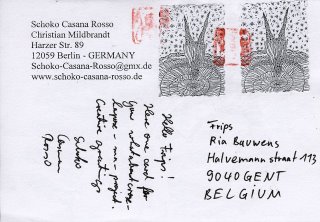 Schoko Casana Rosso
Christian Mildbrandt
Harzer Str. 89
12059 Berlin - GERMANY
Schoko-Casana-Rosso@gmx.de
www.schoko-casana-rosso.de
Hello Frips!
Here one card for
your
project.
Creative greetings
Schoko
Casana
Rosso
Frips
Ria Bauwens
Halvemaanstraat 113
9040 GENT
BELGIUM